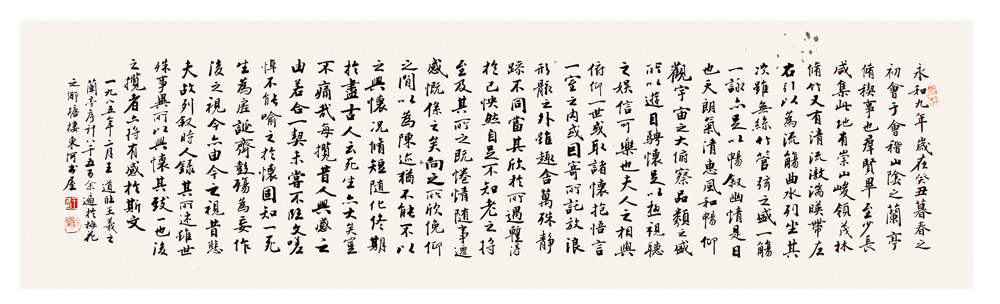 永和九年歲在癸丑暮春之
初會于會稽山陰之蘭亭
脩稧事也羣賢畢至少長
咸集此地有崇山峻領茂林
脩竹又有清流激湍暎帶左
右引以為流觴曲水列坐其
次雖無絲竹管弦之盛一觴
一詠亦足以暢敘幽情是日
也天朗氣清惠風和暢仰
觀宇宙之大俯察品類之盛
所以遊目騁懷足以極視聽
之娛信可樂也夫人之相與
俯仰一世或取諸懷抱悟言
一室之內或因寄所託放浪
形骸之外雖趣舍萬殊靜
躁不同當其欣於所遇蹔得
於己怏然自足不知老之將
至及其所之既惓情隨事遷
感慨係之矣向之所欣俛仰
之間以為陳迹猶不能不以
之興懷況脩短隨化終期
於盡古人云死生亦大矣豈
不痛哉每攬昔人興感之
由若合一契未嘗不臨文嗟
悼不能喻之於懷固知一死
生為虛誕齊彭殤為妄作
後之視今亦由今之視昔悲
夫故列敘時人錄其所述雖世
殊事異所以興懷其致一也後
之攬者亦將有感於斯文
一九八五年二月王道旺王羲之
蘭亭序計八千五百余遍於梅花
之鄉塘棲東河書屋